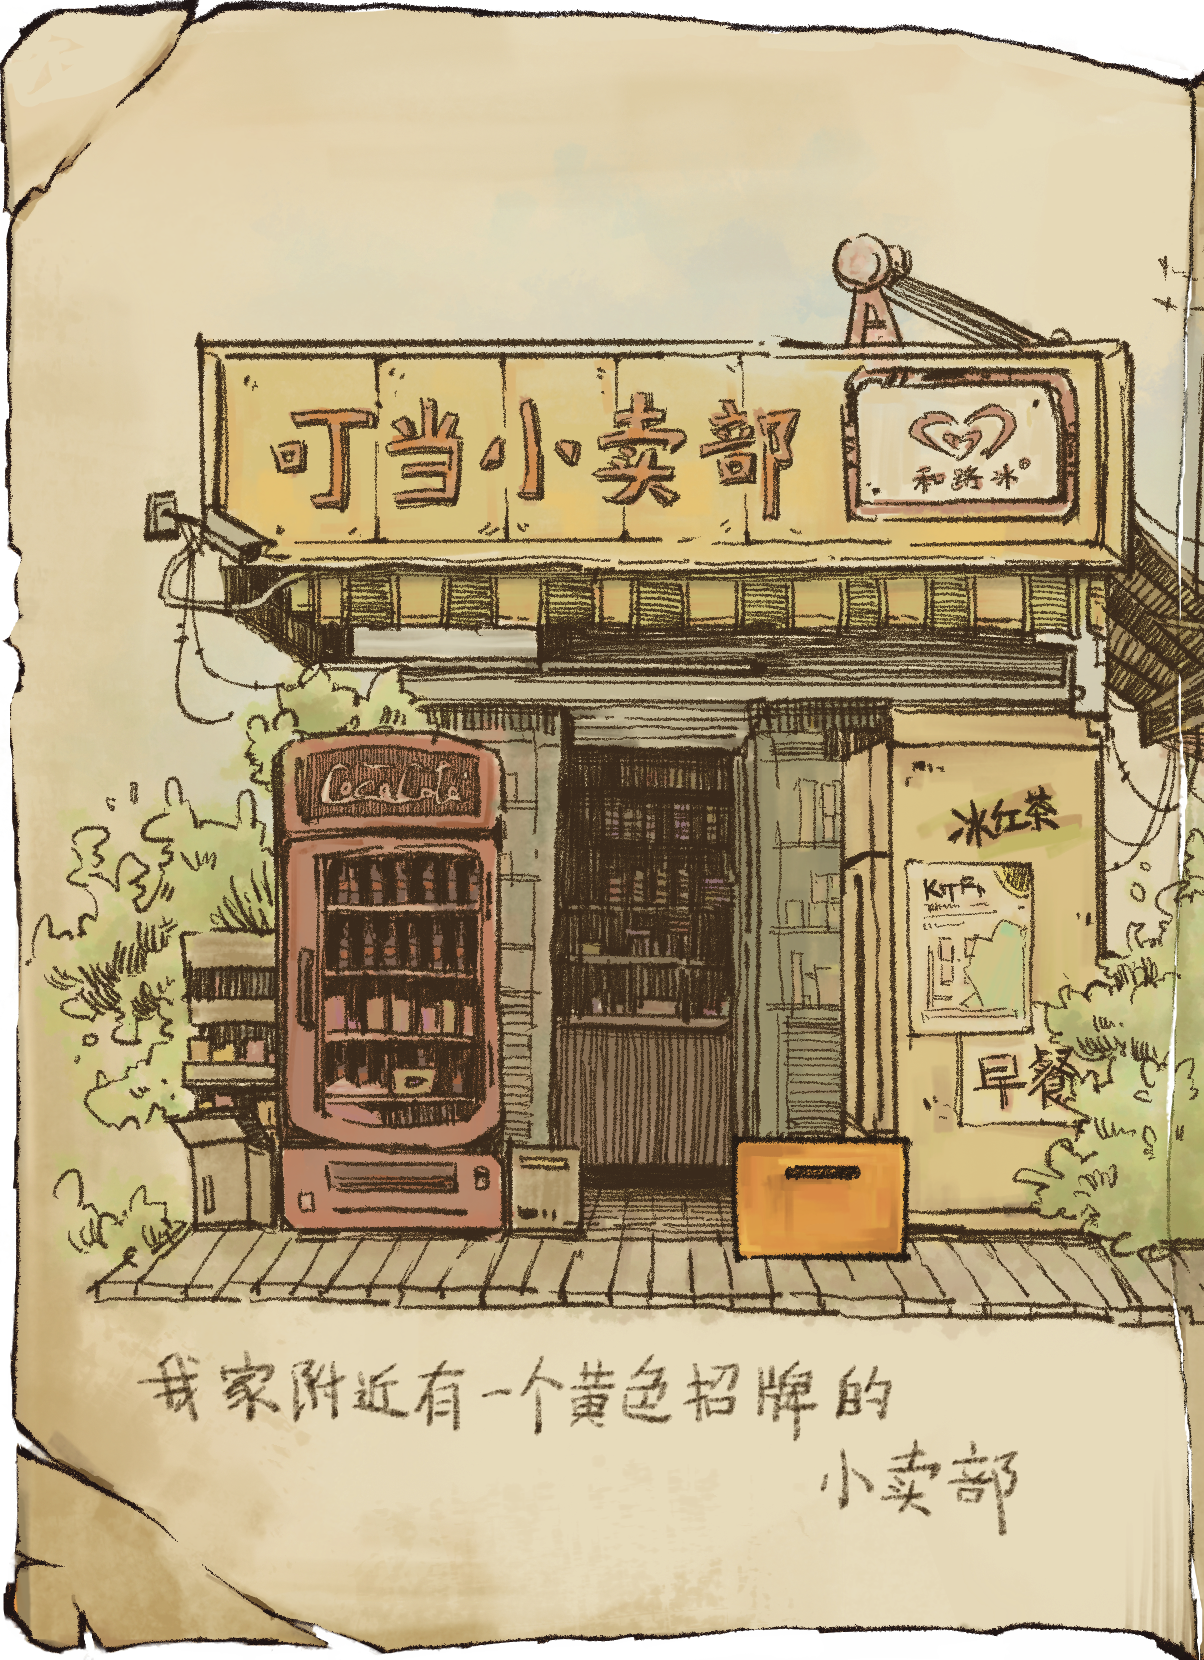 叮当小卖部
和路冰
CocaCola
冰红茶
KITF
早餐
我家附近有一个黄色招牌的
小卖部